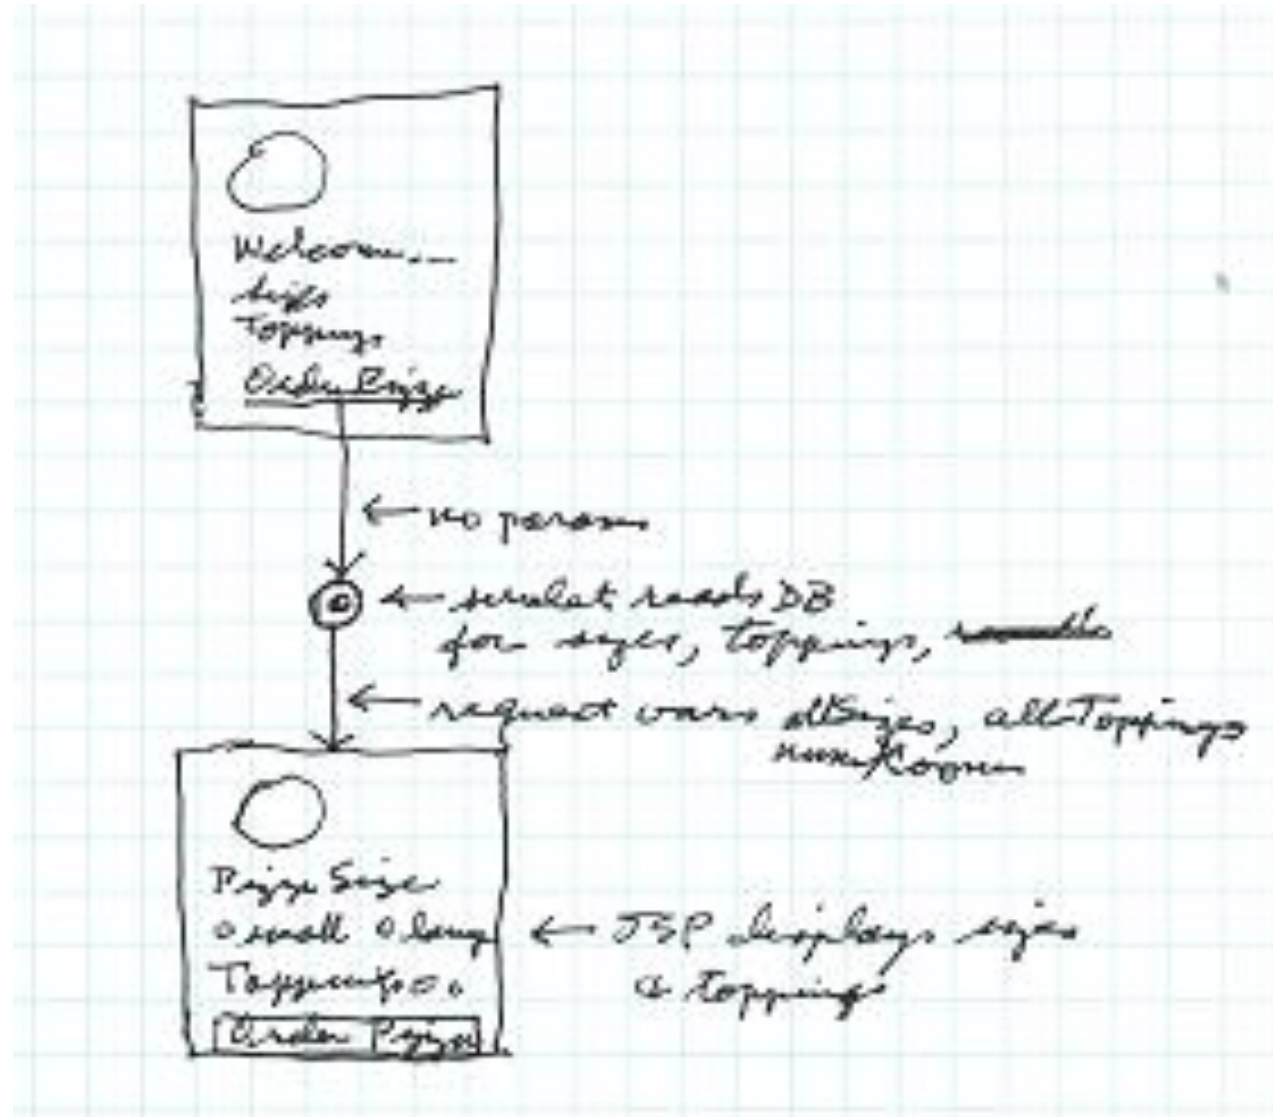 Welcome...
Sizes
Toppings
Order Pizza
← no params
← servlet reads DB
for sizes, toppings,
← request vars allSizes, allToppings
numRooms
Pizza Size
o small o large
Toppings
Order Pizza
← JSP displays sizes
& toppings